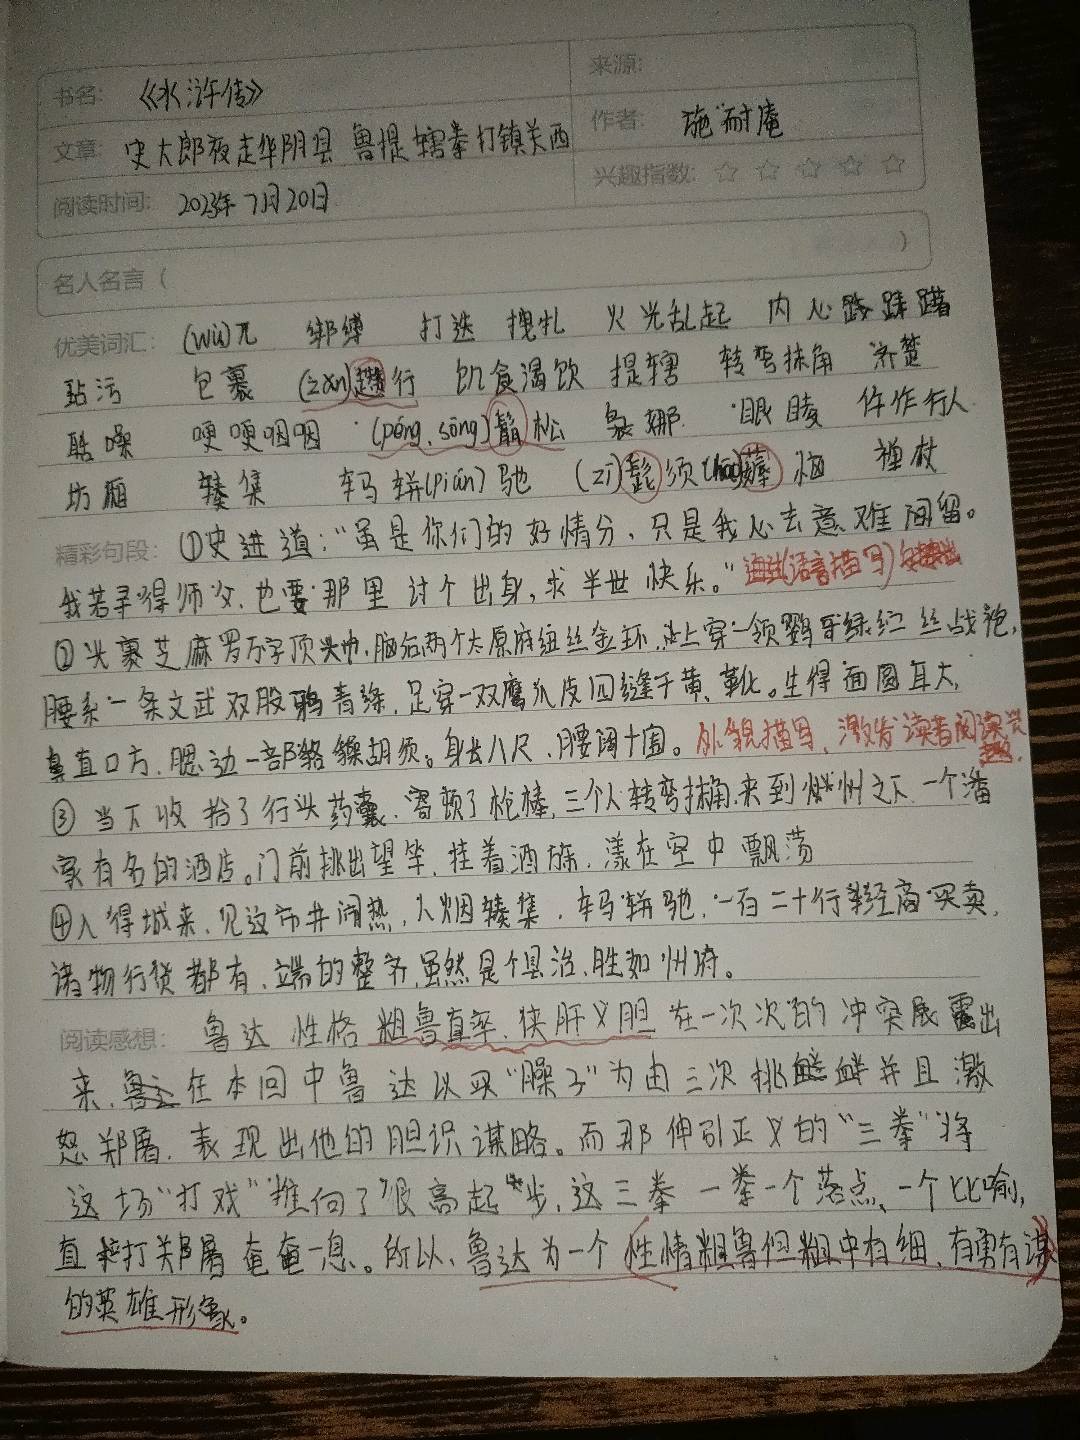 书名: 《水浒传》 来源:
文章: 史大郎夜走华阴县 鲁提辖拳打镇关西 作者: 施耐庵
阅读时间: 2023年7月20日 兴趣指数: ☆ ☆ ☆ ☆ ☆
名人名言 ( )
优美词汇: (wù)兀 绑缚 打迭 拽扎 火光乱起 内心踌躇
玷污 包裹 (zǎn)趱行 饥食渴饮 提辖 转弯抹角 齐楚
聒噪 哽哽咽咽 (péng、sōng)鬅松 袅娜 眼睦 仵作行人
坊厢 辏集 车马軿(pián)驰 (zī)髭须 (hāo)薅恼 禅杖
精彩句段: ①史进道:“虽是你们的好情分、只是我心去意难留。
我若寻得师父、也要那里讨个出身,求半世快乐。” (语言描写)
②头裹芝麻罗万字顶头巾,脑后两个太原府纽丝金环,上穿一领鹦哥绿纻丝战袍,
腰系一条文武双股鸦青绦,足穿一双鹰爪皮四缝干黄靴。生得面圆耳大,
鼻直口方、腮边一部貉䫇胡须。身长八尺,腰阔十围。外貌描写,激发读者阅读兴趣.
③当下收拾了行头药囊、寄顿了枪棒,三个人转弯抹角,来到州桥之下一个潘
家有名的酒店。门前挑出望竿,挂着酒旆、漾在空中飘荡
④入得城来,见这市井闹热,人烟辏集、车马軿驰、一百二十行经商买卖,
诸物行货都有、端的整齐,虽然是个县治,胜如州府。
阅读感想: 鲁达性格粗鲁直率,侠肝义胆在一次次的冲突展露出
来,在本回中鲁达以买“臊子”为由三次挑衅并且激
怒郑屠,表现出他的胆识谋略。而那伸引正义的“三拳”将
这场“打戏”推向了很高起步,这三拳一拳一个落点、一个比喻,
直打郑屠奄奄一息。所以、鲁达为一个(性情粗鲁但粗中有细,有勇有谋)
的英雄形象。